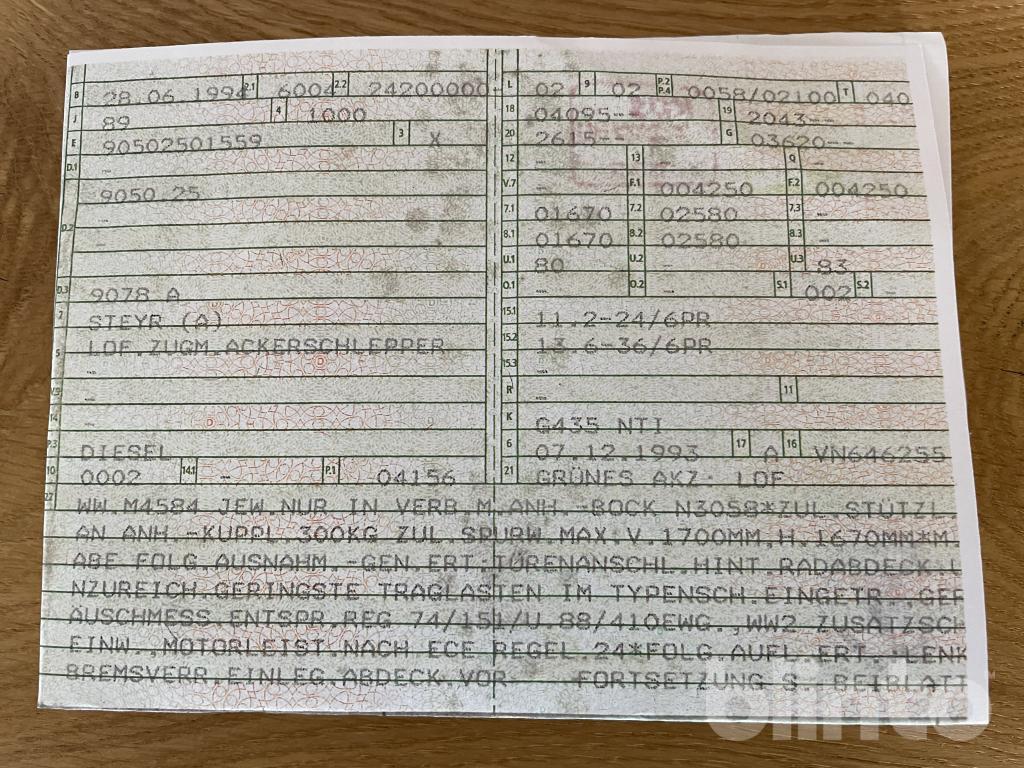 B 28.06.1994 2.1 6004 2.2 24200000 L 02 9 02 P.2 P.4 0058/02100 T 040
J 89 4 1000 18 04095-- 19 2043--
E 90502501559 3 X 20 2615-- G 03620--
D.1 -- 12 - 13 - Q -
9050.25 V.7 - F.1 004250 F.2 004250
D.2 -- 7.1 01670 7.2 02580 7.3 --
- 8.1 01670 8.2 02580 8.3 -
U.1 80 U.2 - U.3 83
D.3 9078 A O.1 -- O.2 -- S.1 002 S.2 -
2 STEYR (A) 15.1 11.2-24/6PR
5 LOF.ZUGM.ACKERSCHLEPPER 15.2 13.6-36/6PR
-- 15.3 --
V.9 -- R -- 11
14 K G435 NTI
P.3 DIESEL 6 07.12.1993 17 A 16 VN646255
10 0002 14.1 - P.1 04156 21 GRÜNES AKZ. LOF
22 WW.M4584 JEW.NUR IN VERB.M.ANH.-BOCK N3058*ZUL.STÜTZL
AN ANH.-KUPPL.300KG ZUL.SPURW.MAX.V.1700MM,H.1670MM*M.
ABE FOLG.AUSNAHM.-GEN.ERT.:TÜRENANSCHL.HINT.RADABDECK.
NZUREICH.GERINGSTE TRAGLASTEN IM TYPENSCH.EINGETR.,GER
ÄUSCHMESS.ENTSPR.REG.74/151/U.88/410EWG.,WW2 ZUSATZSCH
EINW.,MOTORLEIST.NACH ECE REGEL.24*FOLG.AUFL.ERT.:LENK
BREMSVERR.EINLEG.ABDECK.VOR FORTSETZUNG S. BEIBLATT